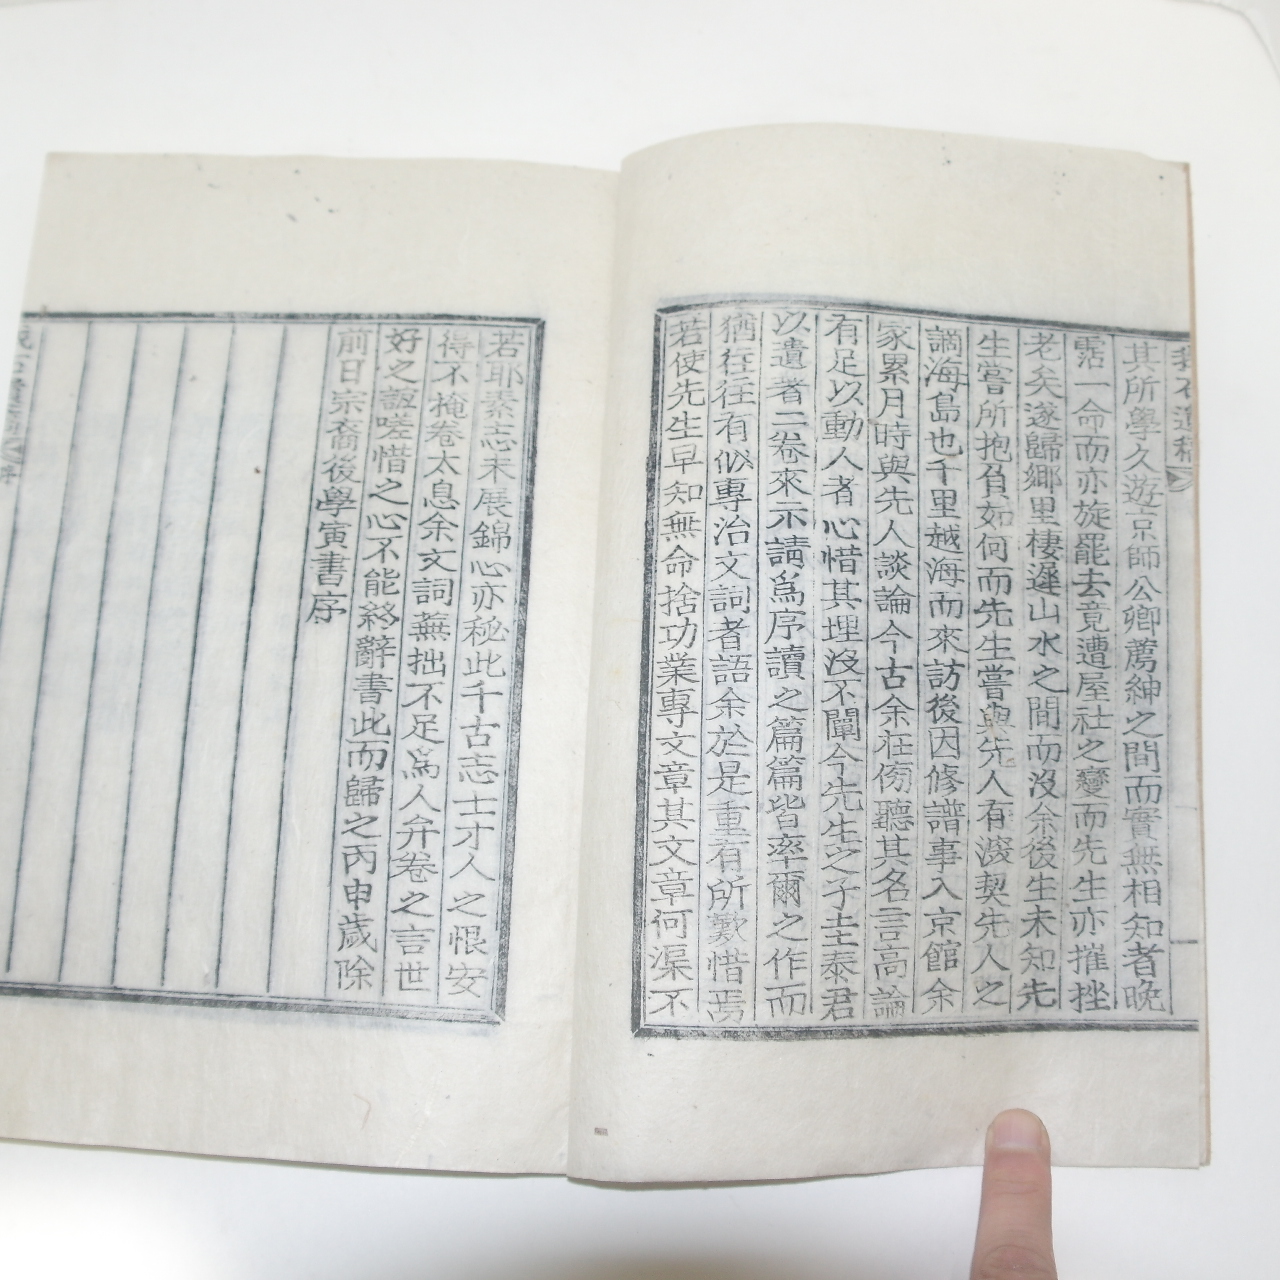 其所學久遊京師公卿薦紳之間而實無相知者晩
霑一命而亦旋罷去竟遭屋社之變而先生亦摧挫
老矣遂歸鄉里棲遲山水之間而沒余後生未知先
生嘗所抱負如何而先生嘗與先人有深契先人之
謫海島也千里越海而來訪後因修譜事入京館余
家累月時與先人談論今古余在傍聽其名言高論
有足以動人者心惜其埋沒不闡今先生之子圭泰君
以遺者二卷來示請爲序讀之篇篇皆率爾之作而
猶往往有似專治文詞者語余於是重有所歎惜焉
若使先生早知無命捨功業專文章其文章何渠不
若耶素志未展錦心亦秘此千古志士才人之恨安
得不掩卷太息余文詞蕪拙不足爲人弁卷之言世
好之誼嗟惜之心不能終辭書此而歸之丙申歲除
前日宗裔後學寅書序